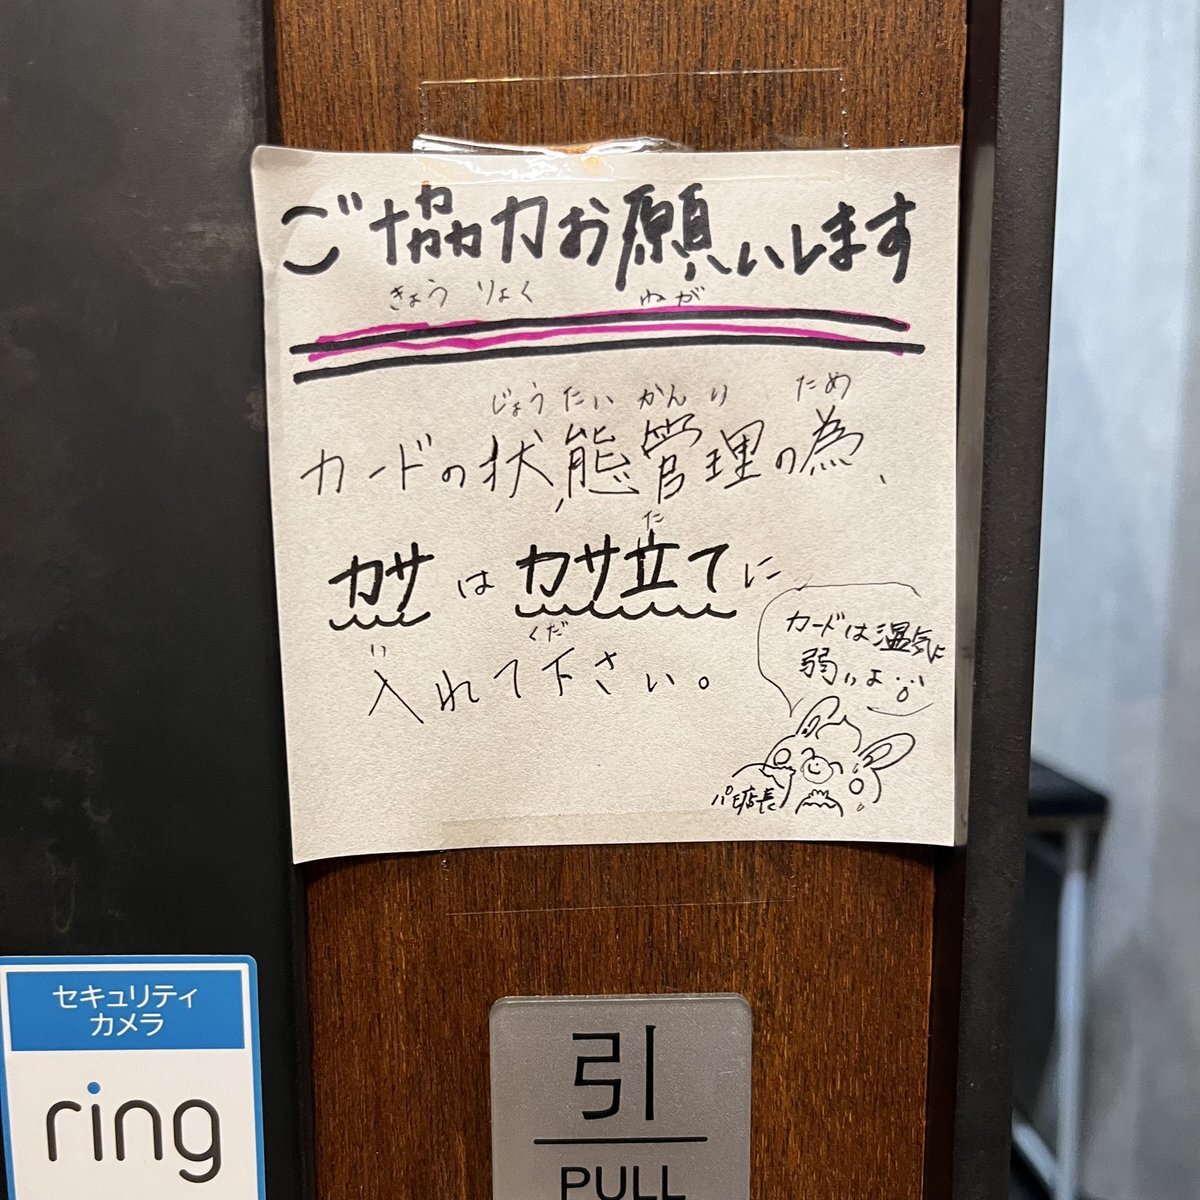 ご協力お願いします
きょう りょく ねが
じょう たい かん り ため
カードの状態管理の為、
た
カサ は カサ立てに
い くだ
入れて下さい。
カードは湿気に
弱いよ…
店長
セキュリティ
カメラ
ring
引
PULL